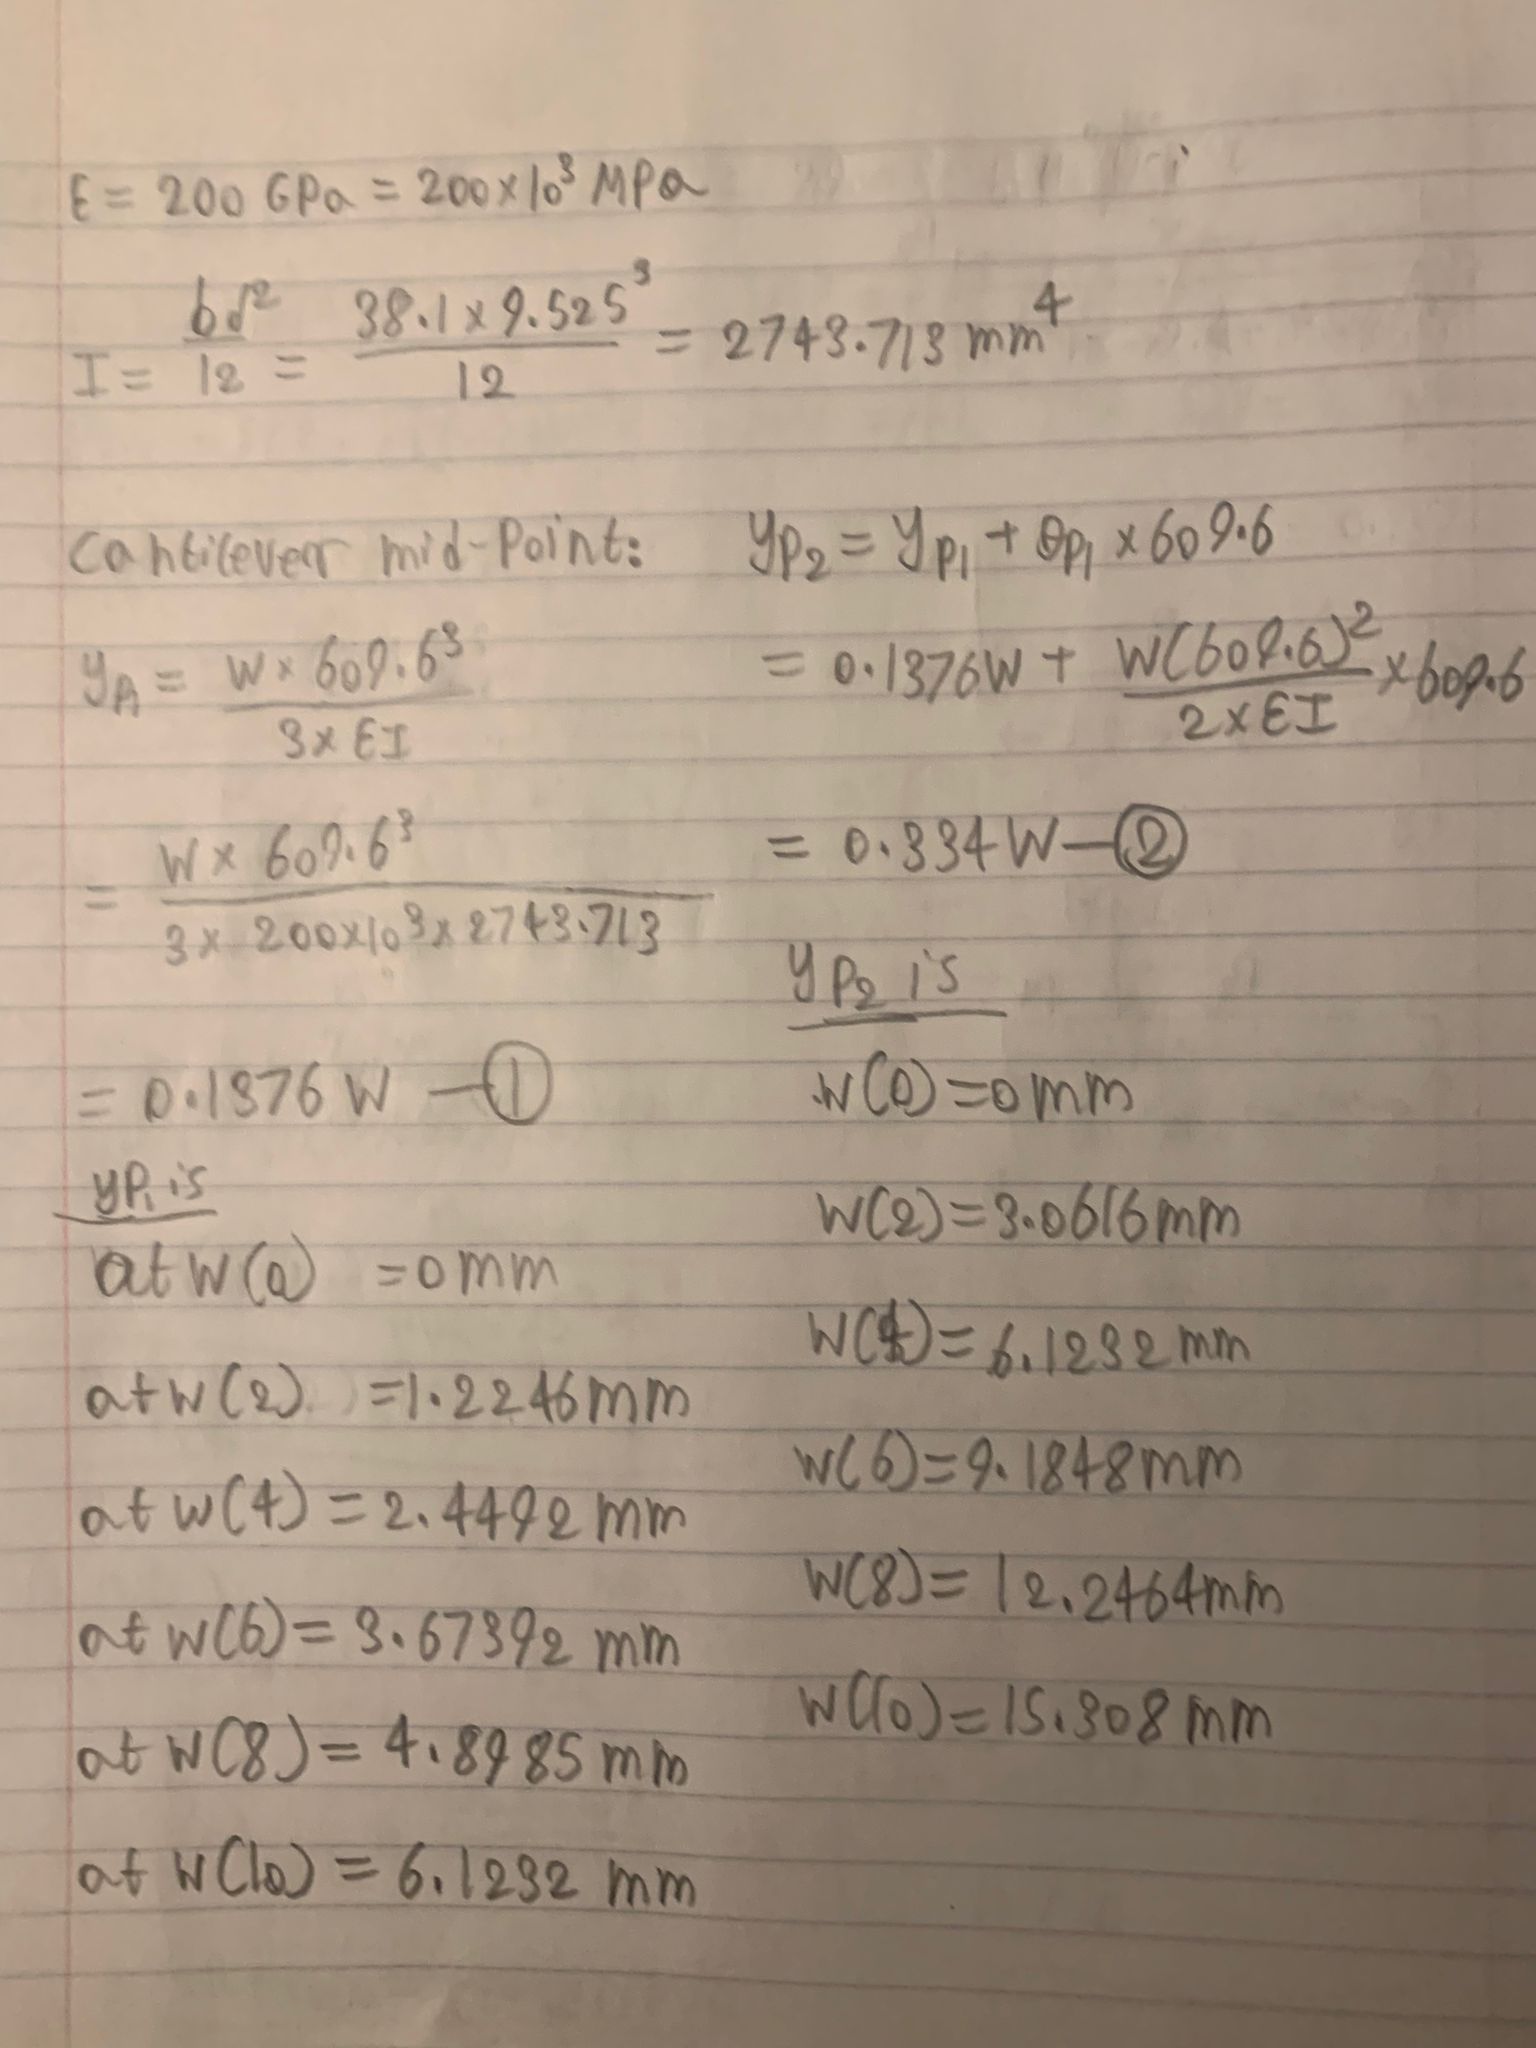 E = 200 GPa = 200×10³ MPa
I = bd²/12 = 38.1 × 9.525³/12 = 2743.713 mm⁴
Cantilever mid-Point:
yP₁ = W × 609.6³/3× EI
= W× 609.6³/3× 200×10³× 2743.713
= 0.1376 W —①
yP₁ is
at W(0) = 0 mm
at W(2) = 1.2246 mm
at W(4) = 2.4492 mm
at W(6) = 3.67392 mm
at W(8) = 4.8985 mm
at W(10) = 6.1232 mm
yP₂ = yP₁ + θP₁ × 609.6
= 0.1376W + W(609.6)²/2×EI × 609.6
= 0.334 W —②
yP₂ is
W(0) = 0 mm
W(2) = 3.0616 mm
W(4) = 6.1232 mm
W(6) = 9.1848 mm
W(8) = 12.2464 mm
W(10) = 15.308 mm